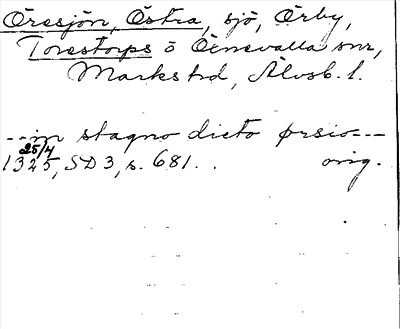 Öresjön, Östra, sjö, Örby,
Torestorps o Öxnevalla snr,
Markshd, Älvsb. l.
--in stagno dicto ørsio---
25/4
1325, SD3, s. 681. . orig.